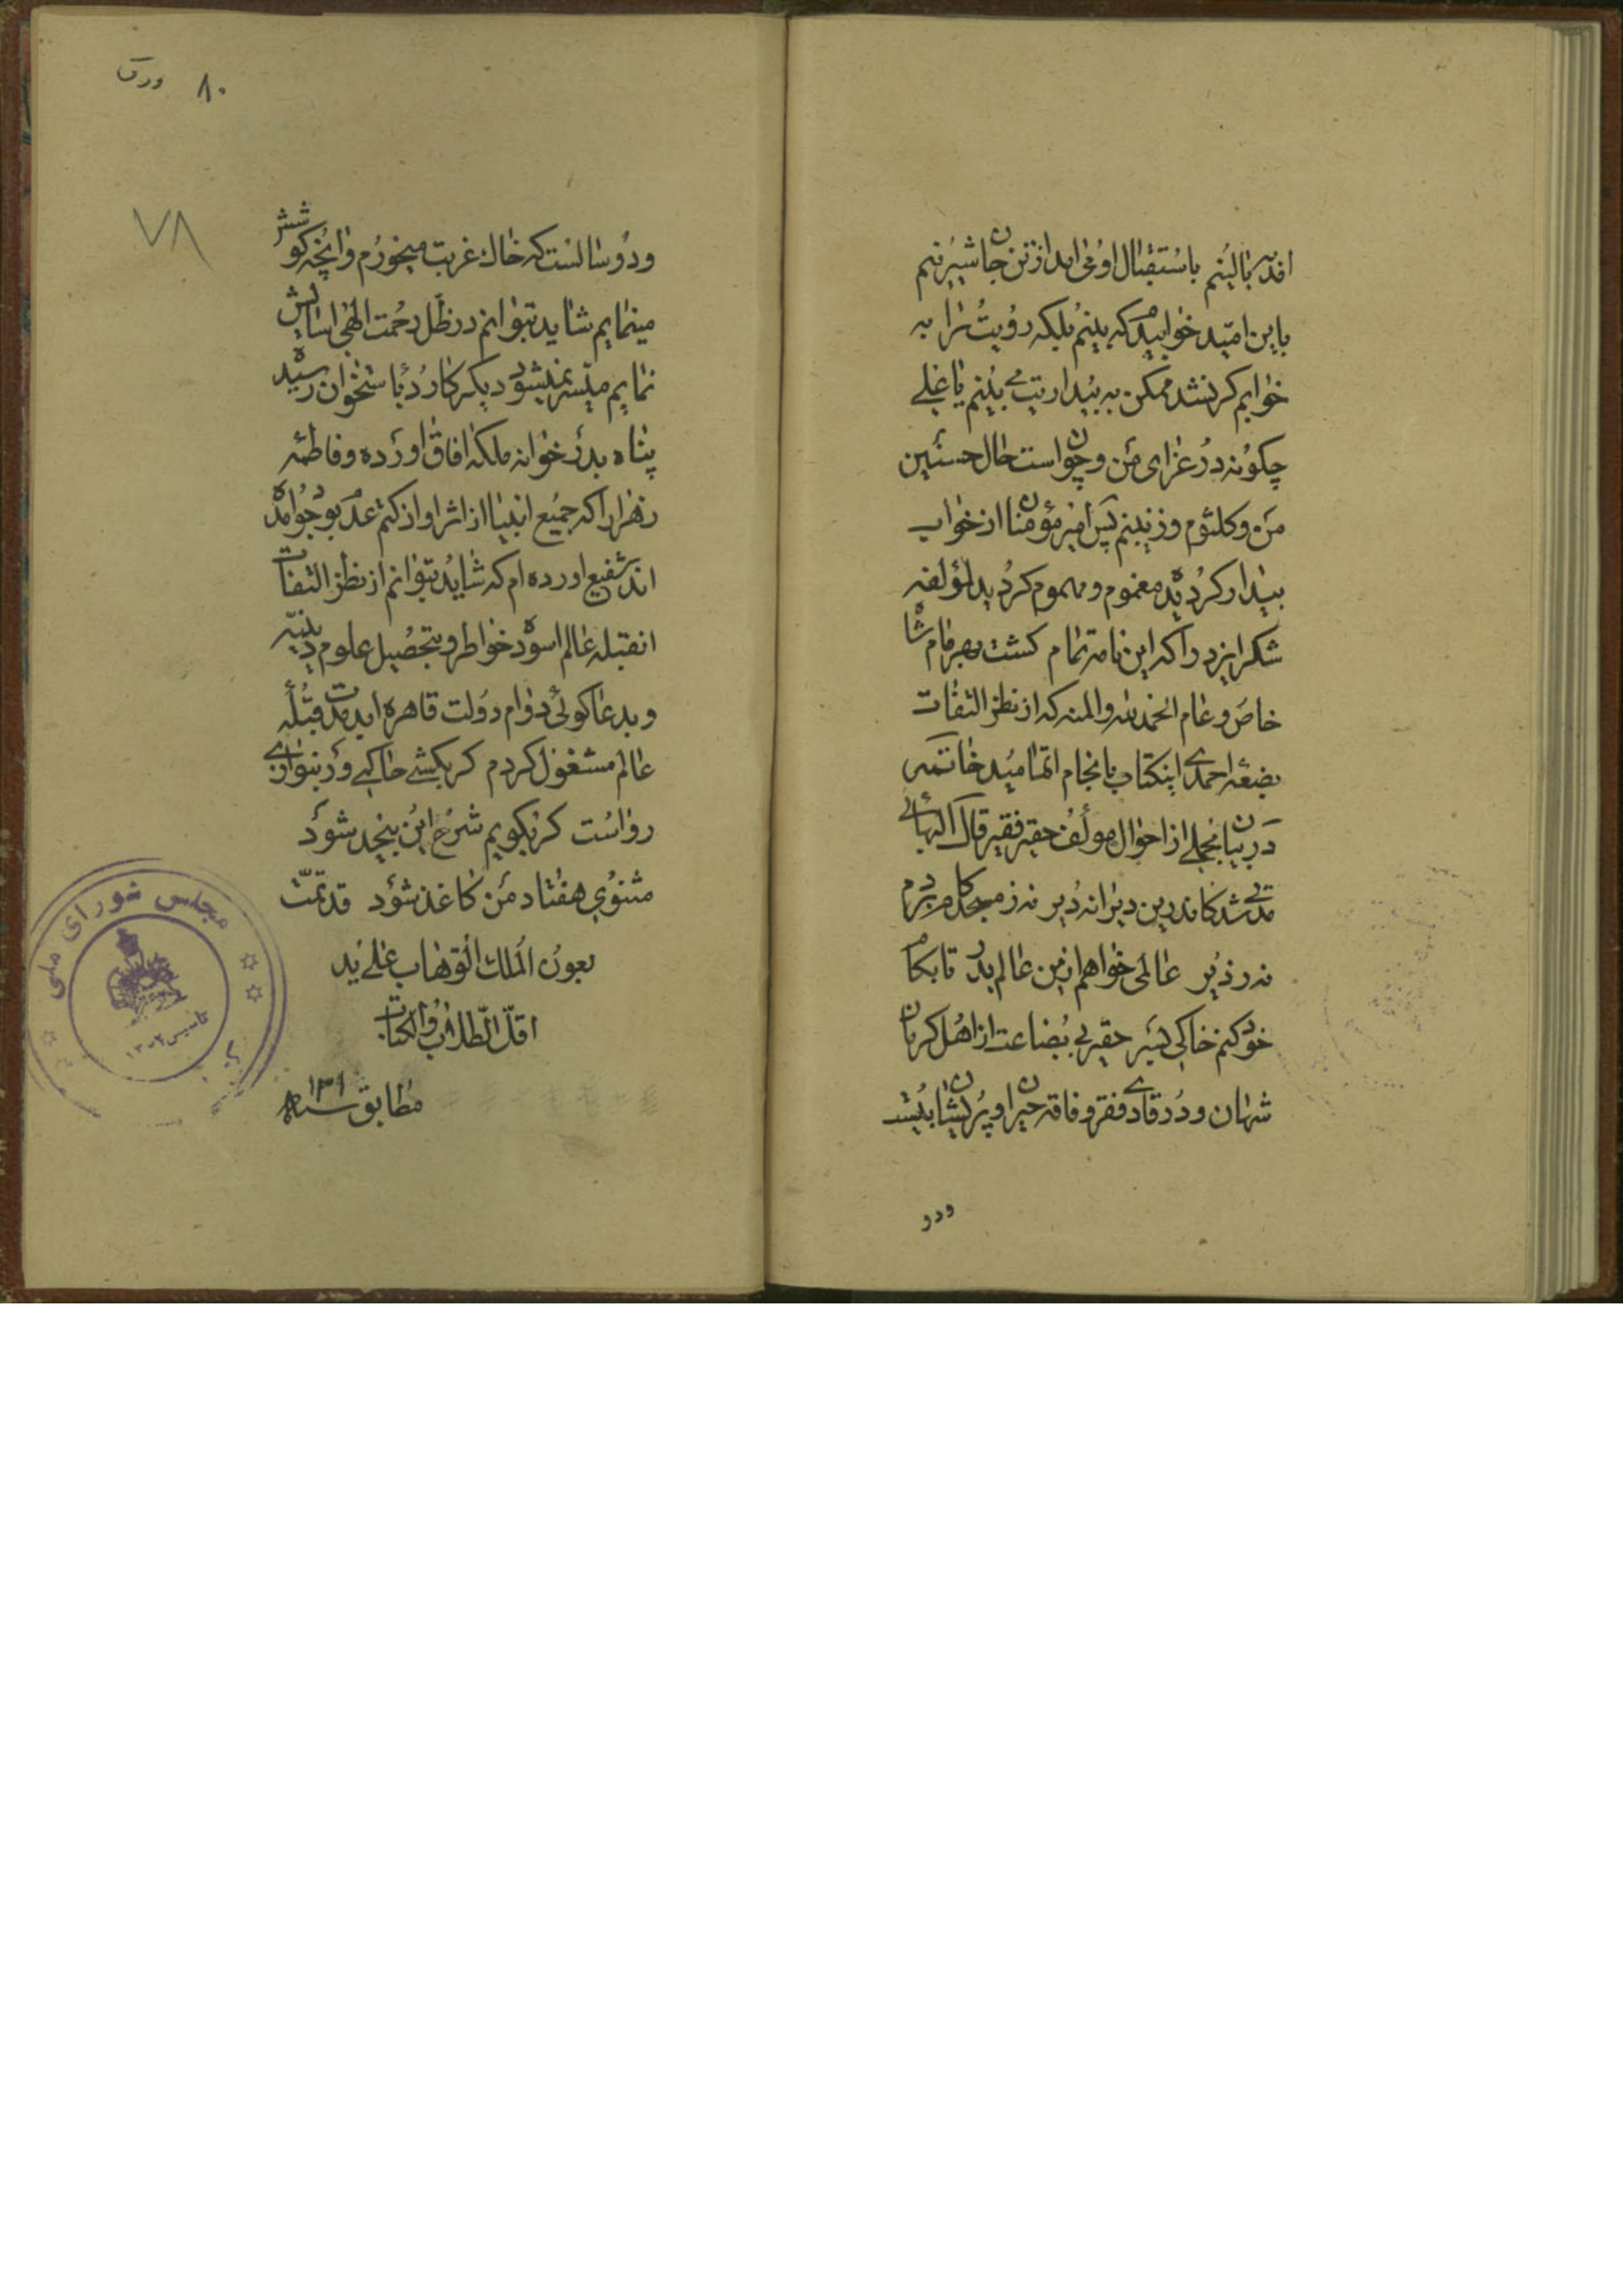 افتد ببالینم باستقبال او می اید از تن جان شیرینم
باین امید خوابیدم که بینم بلکه رویت را به
خوابم کر نشد ممکن به بیداریت می بینم یا علی
چکونه در عزای من و چون است حال حسنین
من و کلثوم و زینبنم پس امیر مؤمنان از خواب
بیدار کردیده مغموم و مهموم کردید لمؤلفه
شکر ایزد را که این نامه تمام کشت بهر فام شاه
خاص و عام الحمدلله والمنه که از نظر التفات
بضعه احمدی اینکتاب بانجام اتمامید خاتمه
در بیان مجملی از احوال مولف حقیر فقیر قال البهائی
مدتی شد کاندرین دیرانه دیر نه ز مسجد کام بردم
نه ز دیر عالمی خواهم ازین عالم بدر تا بکام
خود کنم خاکی بسر حقیر بی بضاعت از اهل کرمان
شهان و در وادی فقر و فاقه حیران و پریشان بیست
ودو
۸۰ ورق
۷۸
و دو سالست که خاک غربت میخورم و انچه کوشش
مینمایم شاید بتوانم در ظل رحمت الهی اسایش
نمایم میسر نمیشود دیکر کارد باستخوان رسیده
پناه بدرخوانه ملکه افاق اورده و فاطمه
زهرا را که جمیع انبیا از اثر او از کتم عدم بوجود امده
اند شفیع اورده ام که شاید بتوانم از نظر التفات
انقبله عالم اسوده خواطر و بتحصیل علوم دینیه
و بدعاکوئی دوام دولت قاهره ابدمدت قبله
عالم مشغول کردم کر بکشی حاکمی ور بنوازی
رواست کر بکویم شرح این بیحد شود
مثنوی هفتاد من کاغذ شود قد تمت
بعون الملک الوهاب علی ید
اقل الطلاب والکتاب
مطابق سنه ۱۳۱
مجلس شورای ملی
تاسیس ۱۳۰۲